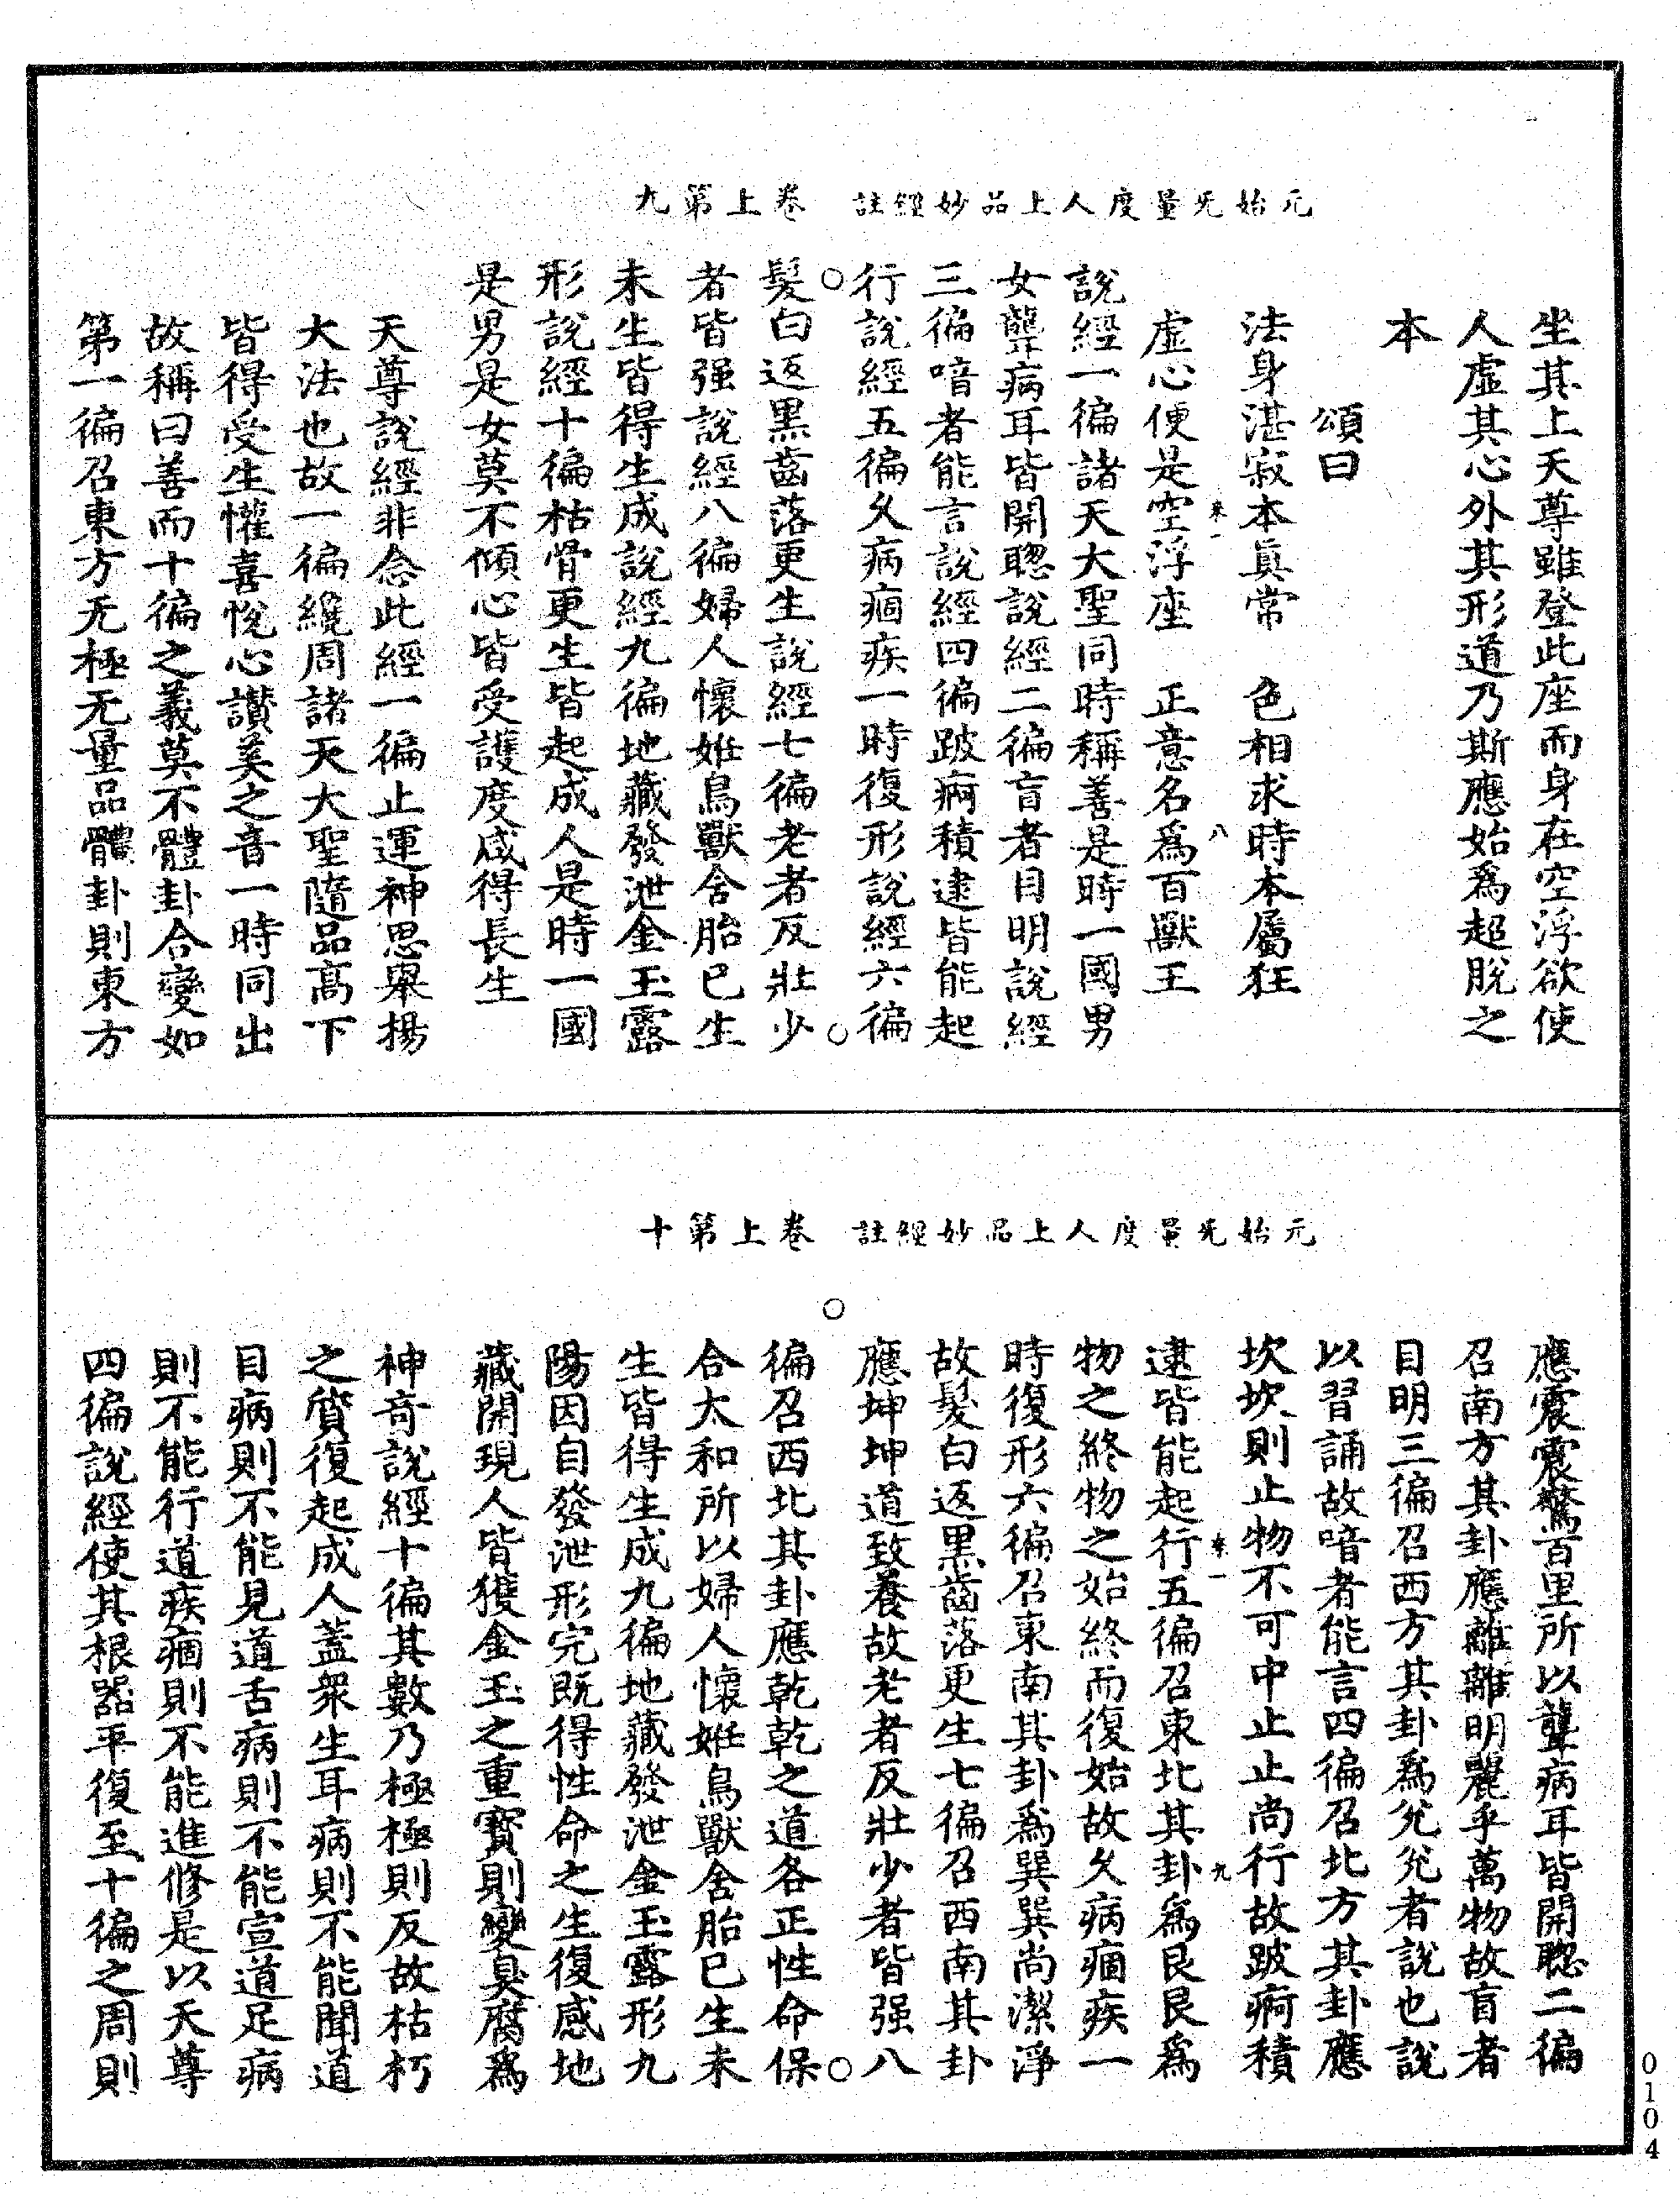 元始无量度人上品妙經註　卷上第九
坐其上天尊雖登此座而身在空浮欲使
人虛其心外其形道乃斯應始為超脫之
本
頌曰
法身湛寂本真常　色相求時本屬狂
來一　八
虛心便是空浮座　正意名為百獸王
說經一徧諸天大聖同時稱善是時一國男
女聾病耳皆開聰說經二徧盲者目明說經
三徧喑者能言說經四徧跛痾積逮皆能起
行說經五徧久病痼疾一時復形說經六徧
髮白返黑齒落更生說經七徧老者反壯少
者皆强說經八徧婦人懷妊鳥獸含胎已生
未生皆得生成說經九徧地藏發泄金玉露
形說經十徧枯骨更生皆起成人是時一國
是男是女莫不傾心皆受護度咸得長生
天尊說經非念此經一徧止運神思舉揚
大法也故一徧纔周諸天大聖隨品高下
皆得受生懽喜悅心讚美之音一時同出
故稱曰善而十徧之義莫不體卦合變如
第一徧召東方无極无量品體卦則東方
元始无量度人上品妙經註　卷上第十
應震震驚百里所以聾病耳皆開聰二徧
召南方其卦應離離明麗乎萬物故盲者
目明三徧召西方其卦為兌兌者說也說
以習誦故喑者能言四徧召北方其卦應
坎坎則止物不可中止止尚行故跛痾積
來一　九
逮皆能起行五徧召東北其卦為艮艮為
物之終物之始終而復始故久病痼疾一
時復形六徧召東南其卦為巽巽尚潔淨
故髮白返黑齒落更生七徧召西南其卦
應坤坤道致養故老者反壯少者皆强八
徧召西北其卦應乾乾之道各正性命保
合太和所以婦人懷妊鳥獸含胎已生未
生皆得生成九徧地藏發泄金玉露形九
陽因自發泄形完既得性命之生復感地
藏開現人皆獲金玉之重寶則變臭腐為
神奇說經十徧其數乃極極則反故枯朽
之質復起成人蓋衆生耳病則不能聞道
目病則不能見道舌病則不能宣道足病
則不能行道疾痼則不能進修是以天尊
四徧說經使其根器平復至十徧之周則
0104